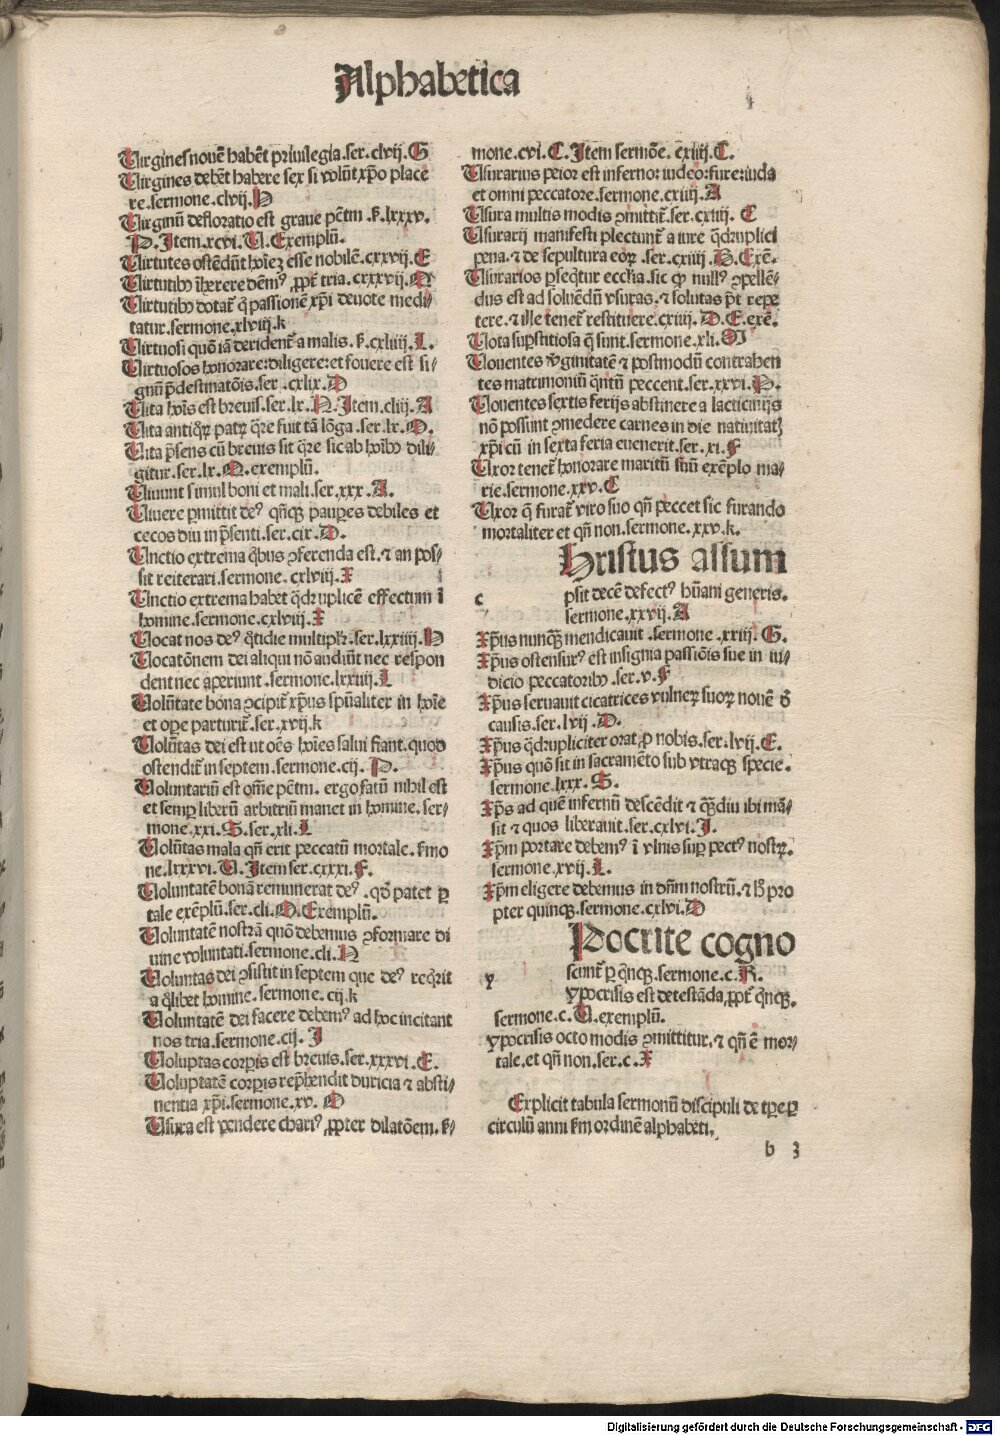 Alphabetica
Virgines nouē habēt priuilegia.ser.clvij.G
Virgines debēt habere sex si volūt xp̄o place
re.sermone.clvij.P
Virginū defloratio est graue pctm̄.ẜ.lxxxv.
P.Item.xcvi.V.Exemplū.
Virtutes ostēdūt hoīeȝ esse nobilē.cxxvij.E
Virtutibꝰ īherere dēmꝰ ꝓpt̄ tria.cxxxvij.N
Virtutibꝰ dotat̄ q̄ passionē xp̄i deuote medi⸗
tatur.sermone.xlviij.k
Virtuosi quō iā derident̄ a malis.ẜ.cxliiij.L.
Virtuosos honorare:diligere:et fouere est si⸗
gnū p̄destinatōis.ser.cxlix.D
Vita hoīs est breuis.ser.lx.N.Item.cliij.A
Vita antiq̄ꝝ patꝝ q̄re fuit tā lōga.ser.lx.O.
Vita p̄sens cū breuis sit q̄re sic ab hoībꝰ dili⸗
gitur.ser.lx.O.exemplū.
Viuunt simul boni et mali.ser.xxx.A.
Viuere ꝑmittit deꝰ qn̄qꝫ pauꝑes debiles et
cecos diu in p̄senti.ser.cix.D.
Vnctio extrema q̄bus ꝯferenda est.⁊ an pos⸗
sit reiterari.sermone.cxlviij.X
Vnctio extrema habet q̄druplicē effectum ī
homine.sermone.cxlviij.X
Vocat nos deꝰ q̄tidie multiplr̄.ser.lxxiiij.N
Vocatōnem dei aliqui nō audiūt nec respon
dent nec aperiunt.sermone.lxxiiij.L
Volūtate bona ꝯcipit̄ xp̄us spūaliter in hoīe
et oꝑe parturit̄.ser.xvij.k
Volūtas dei est ut oēs hoīes salui fiant.quod
ostendit̄ in septem.sermone.cij. P.
Voluntariū est om̄e pctm̄. ergo fatū nihil est
et semꝑ liberū arbitriū manet in homine.ser⸗
mone.xxi.S.ser.xli.L
Volūtas mala qn̄ erit peccatū mortale.ẜmo
ne.lxxxvi.V.Item ser.cxxxi.F.
Voluntatē bonā remunerat deꝰ.qd̄ patet ꝑ
tale exēplū.ser.cli.O.Exemplū.
Voluntatē nostrā quō debemus ꝯformare di
uine voluntati.sermone.cli.N
Voluntas dei ꝯsistit in septem que deꝰ req̄rit
a q̄libet homine.sermone.cij.k
Voluntatē dei facere debemꝰ ad hoc incitant
nos tria.sermone.cij. I
Voluptas corꝑis est breuis.ser.xxxvi.E.
Voluptatē corꝑis rep̄hendit duricia ⁊ absti⸗
nentia xp̄i.sermone.xv. O
Vsura est vendere chariꝰ ꝓpter dilatōem.ẜ⸗
mone.cvi.C.Item sermōe.cxiiij.C.
Vsurarius peior est inferno:iudeo:fure:iuda
et omni peccatore.sermone.cxiiij.A
Vsura multis modis ꝯmittit̄.ser.cxiiij. C
Vsurarij manifesti plectunt̄ a iure q̄druplici
pena.⁊ de sepultura eoꝝ.ser.cxiiij.B.Exē.
Vsurarios ꝑseq̄tur ecclia.sic ꝙ nullꝰ ꝯpellē⸗
dus est ad soluēdū vsuras.⁊ solutas p̄t repe
tere.⁊ ille tenet̄ restituere.cxiiij.D.E.exē.
Vota suꝑstitiosa q̄ sunt.sermone.xli.M
Vouentes v̄ginitatē ⁊ postmodū contrahen
tes matrimoniū q̄ntū peccent.ser.xxvi.P.
Vouentes sextis ferijs abstinere a lacticinijs
nō possunt ꝯmedere carnes in die natiuitatꝭ
xp̄i cū in sexta feria euenerit.ser.xi.F
Vxor tenet̄ honorare maritū suū exēplo ma⸗
rie.sermone.xxv.C
Vxor q̄ furat̄ viro suo qn̄ peccet sic furando
mortaliter et qn̄ non.sermone.xxv.k.
Hristus assum
c psit decē defectꝰ hūani generis.
sermone.xxvij.A
Xp̄us nunqꝫ mendicauit.sermone.xxiij.G.
Xp̄us ostensurꝰ est insignia passiōis sue in iu⸗
dicio peccatoribꝰ.ser.v.F
Xp̄us seruauit cicatrices vulneꝝ suoꝝ nouē d̄
causis.ser.lvij.D.
Xp̄us q̄drupliciter orat ꝓ nobis.ser.lvij.E.
Xp̄us quō sit in sacramēto sub vtraqꝫ specie.
sermone.lxxx. S.
Xp̄s ad quē infernū descēdit ⁊ qꝫdiu ibi mā⸗
sit ⁊ quos liberauit.ser.cxlvi.I.
Xp̄m portare debemꝰ ī vlnis suꝑ pectꝰ nostꝝ.
sermone.xvij.L.
Xp̄m eligere debemus in dn̄m nostrū.⁊ hͦ pro
pter quinqꝫ.sermone.cxlvi.D
Pocrite cogno
y scunt̄ ꝑ q̄nqꝫ.sermone.c.R.
ypocrisis est detestāda,ꝓpt̄ q̄nqꝫ.
sermone.c.V.exemplū.
ypocrisis octo modis ꝯmittitur.⁊ qn̄ ē mor⸗
tale.et qn̄ non.ser.c.X
Explicit tabula sermonū discipuli de tꝑe ꝑ
circulū anni ẜm ordinē alphabeti.
b 3
Digitalisierung gefördert durch die Deutsche Forschungsgemeinschaft - DFG